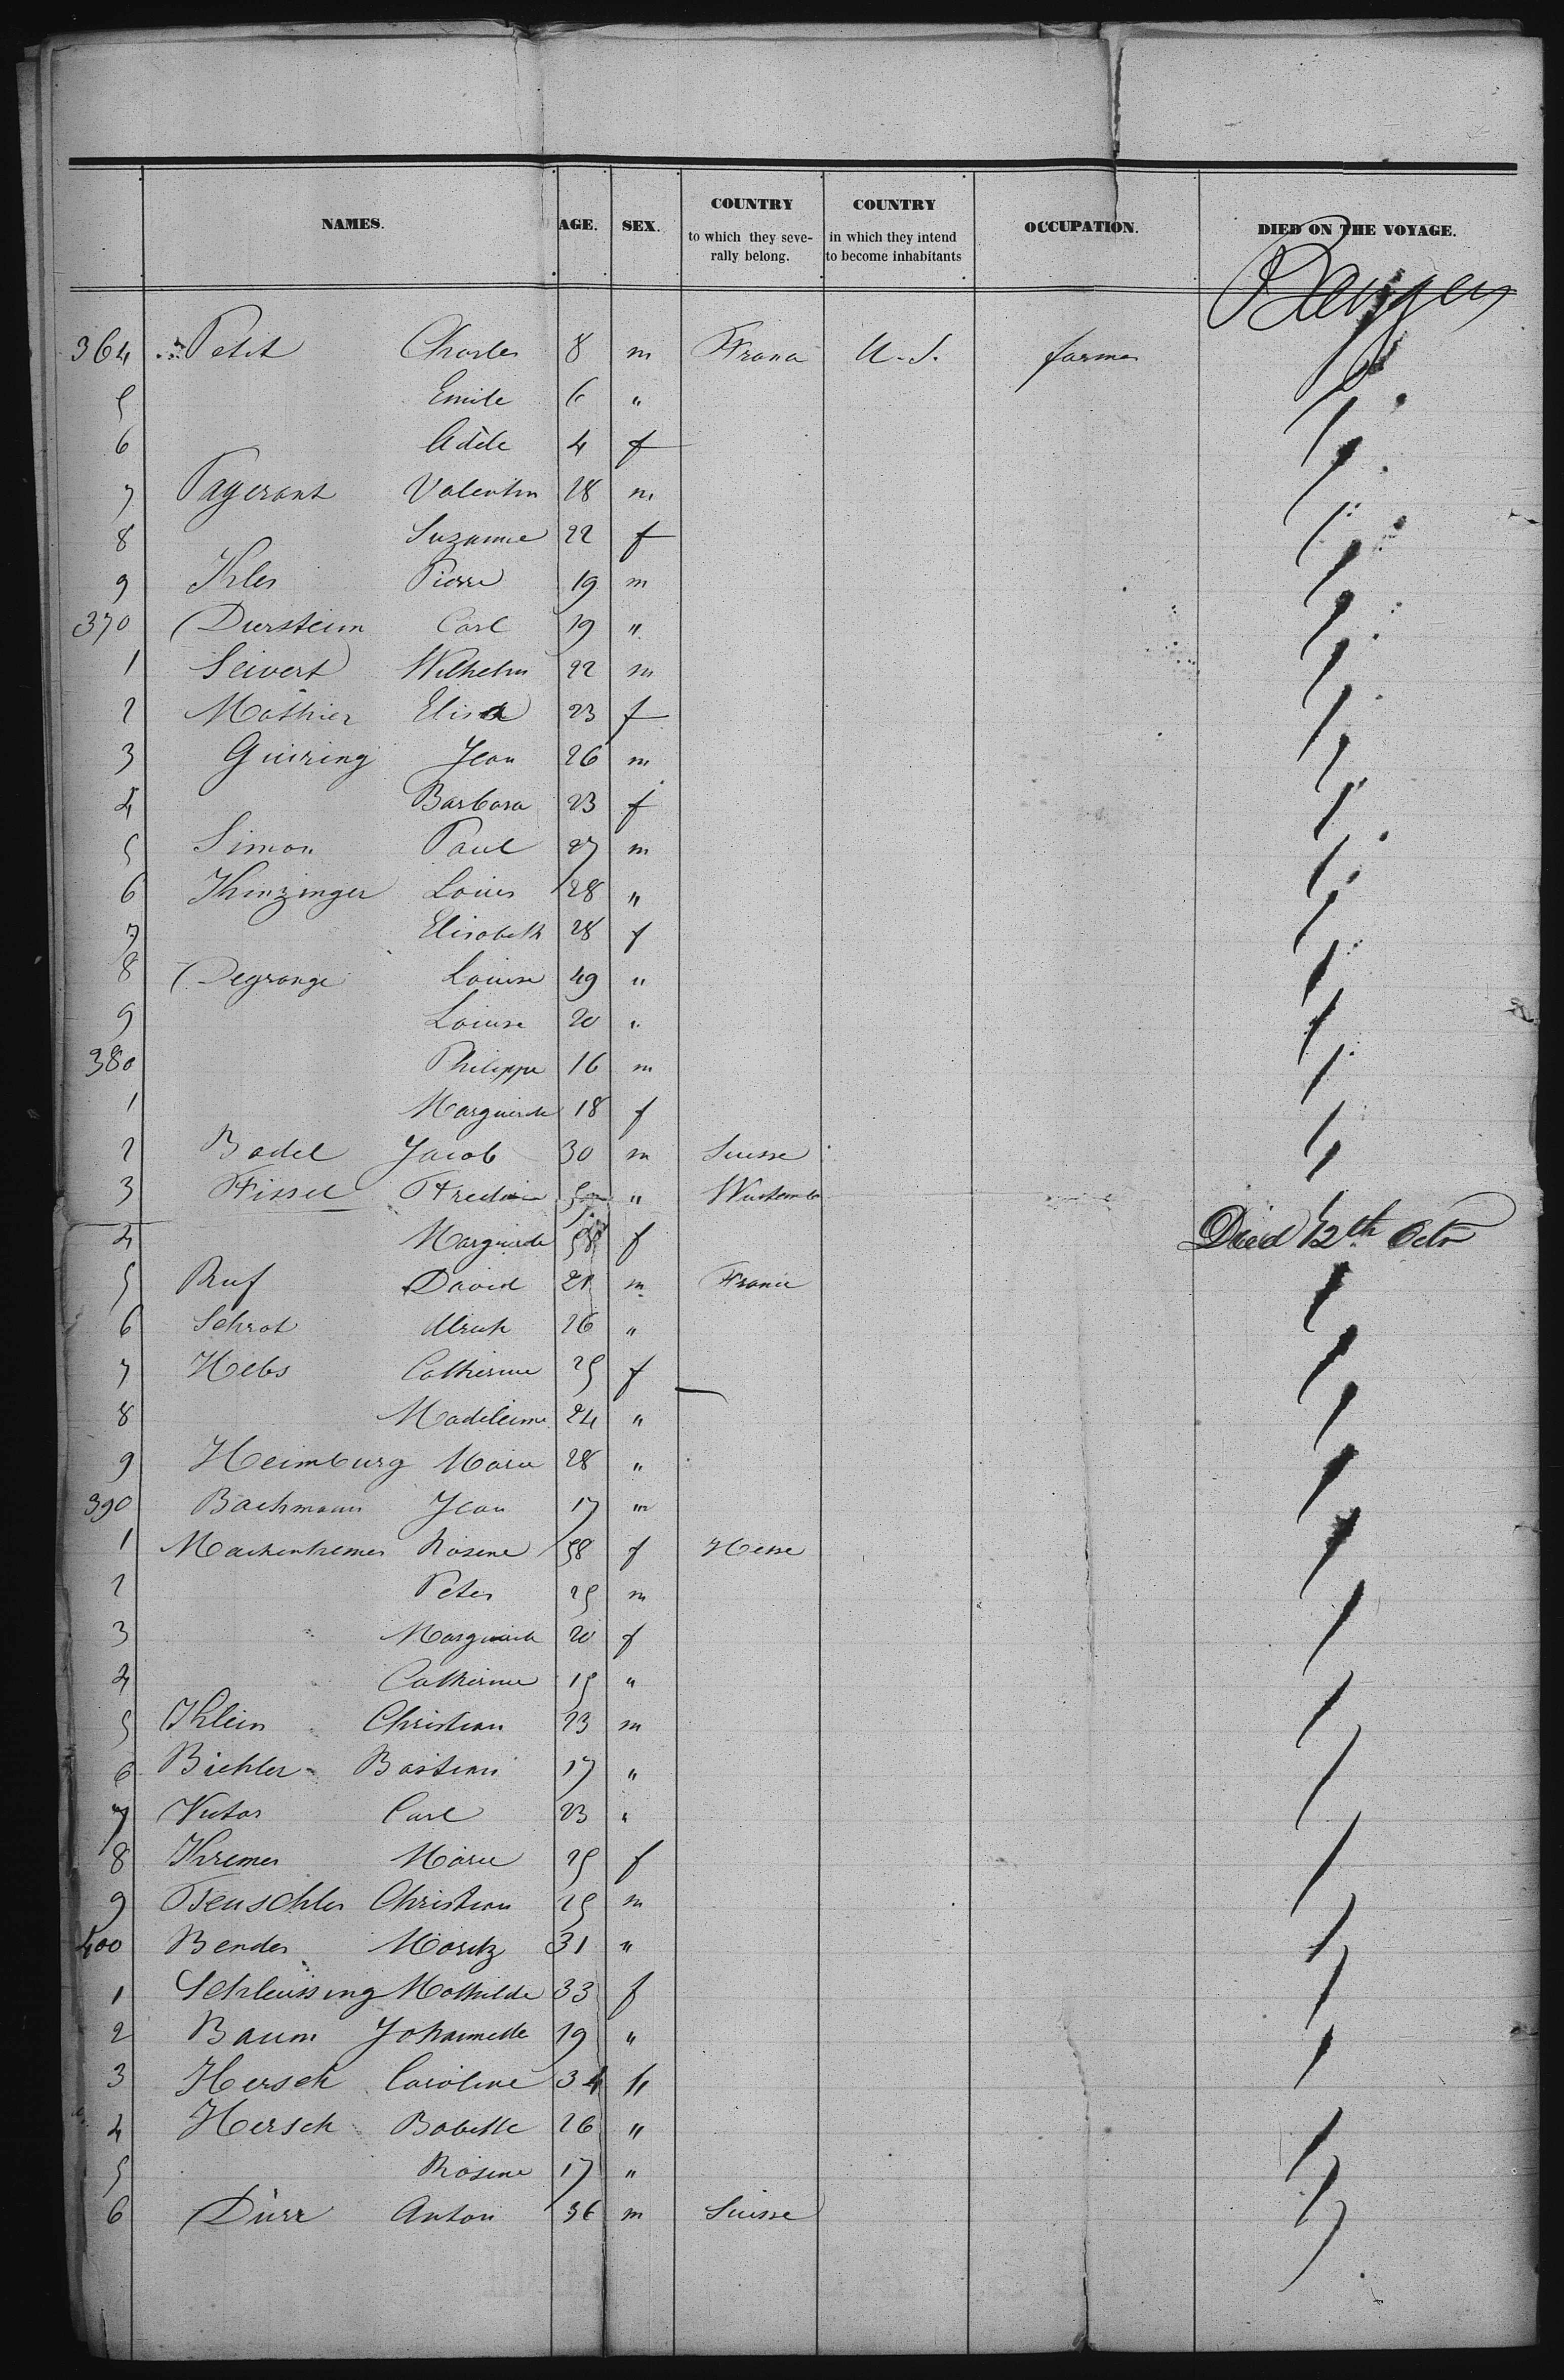 NAMES. AGE. SEX. COUNTRY to which they seve-rally belong. COUNTRY in which they intend to become inhabitants OCCUPATION. DIED ON THE VOYAGE.
364 Petit Charles 8 m France U.S. farmer
5 Emile 6 "
6 Adèle 4 f
7 Pagerant Valentin 28 m
8 Suzanne 22 f
9 Kler Pierre 19 m
370 Dursteim Carl 19 "
1 Seivert Wilhelm 22 m
2 Mathier Elisa 23 f
3 Guiring Jean 26 m
4 Barbara 23 f
5 Simon Paul 27 m
6 Kinzinger Louis 28 "
7 Elisabeth 28 f
8 Degrange Louise 49 "
9 Louise 20 "
380 Philippe 16 m
1 Marguerite 18 f
2 Badel Jacob 30 m Suisse
3 Fissel "
4 Marguerite 58 f Died 12th Octr
5 Ruf David 21 m France
6 Schrot Ulrich 26 "
7 Hebs Catherine 25 f
8 Madeleine 24 "
9 Heimburg Marie 28 "
390 Bachmann Jean 17 m
1 Rosine 58 f Hesse
2 Peter 25 m
3 Marguerite 20 f
4 Catherine 15 "
5 Klein Christian 23 m
6 Bichler Bastian 17 "
7 Victor Carl 23 "
8 Kremer Marie 25 f
9 Christian 25 m
400 Bender Moritz 31 "
1 Schleussing Mathilde 33 f
2 Baum Johannette 19 "
3 Hersch Caroline 34 "
4 Hersch Babette 26 "
5 Rosine 17 "
6 Dürr Anton 36 m Suisse